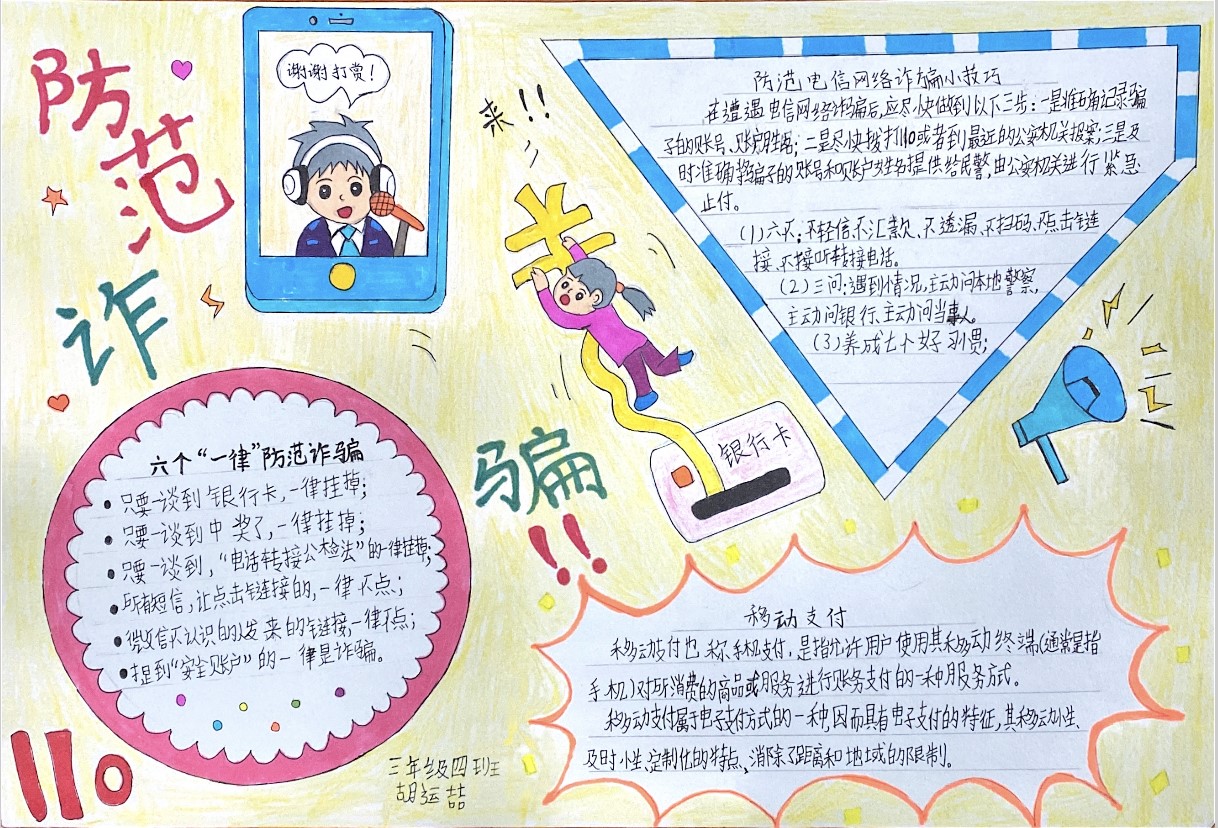 防范
诈
骗!!
谢谢打赏!
来!!
银行卡
防范电信网络诈骗小技巧
在遭遇电信网络诈骗后,应尽快做到以下三步:一是准确记录骗
子的账号、账户姓名;二是尽快拨打110或者到最近的公安机关报案;三是及
时准确将骗子的账号和账户姓名提供给民警,由公安机关进行紧急
止付。
(1)六不:不轻信、不汇款、不透漏、不扫码、不点击链
接、不接听转接电话。
(2)三问:遇到情况,主动问本地警察,
主动问银行、主动问当事人。
(3)养成七个好习惯;
六个“一律”防范诈骗
• 只要一谈到银行卡,一律挂掉;
• 只要一谈到中奖了,一律挂掉;
• 只要一谈到,“电话转接公检法”的一律挂掉;
• 所有短信,让点击链接的,一律不点;
• 微信不认识的人发来的链接,一律不点;
• 提到“安全账户”的一律是诈骗。
移动支付
移动支付也称手机支付,是指允许用户使用其移动终端(通常是指
手机)对所消费的商品或服务进行账务支付的一种服务方式。
移动支付属于电子支付方式的一种,因而具有电子支付的特征,其移动性、
及时性、定制化的特点,消除了距离和地域的限制。
110
三年级四班
胡运喆